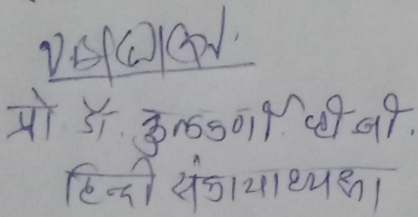 प्रो. डॉ. कुलकर्णी व्ही.बी.
हिन्दी संकायाध्यक्ष